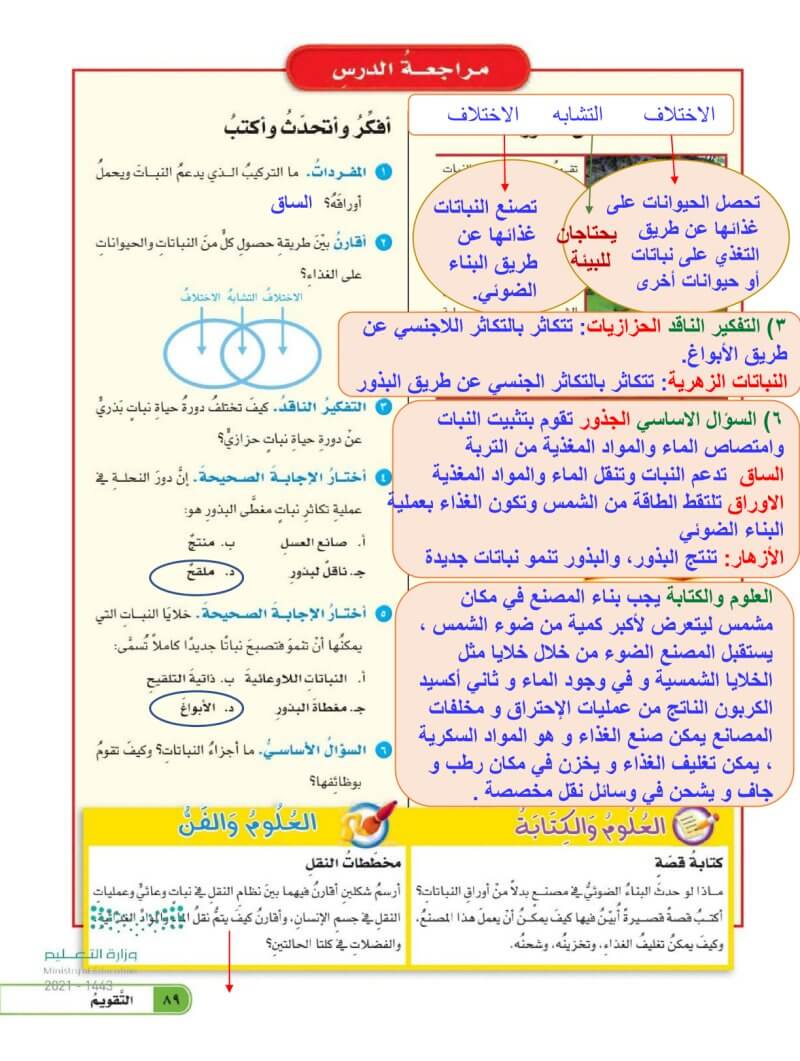 مراجعةُ الدرسِ
الاختلاف التشابه الاختلاف
تحصل الحيوانات على
غذائها عن طريق
التغذي على نباتات
أو حيوانات أخرى
يحتاجان
للبيئة
تصنع النباتات
غذائها عن
طريق البناء
الضوئي.
٣) التفكير الناقد الحزازيات: تتكاثر بالتكاثر اللاجنسي عن
طريق الأبواغ.
النباتات الزهرية: تتكاثر بالتكاثر الجنسي عن طريق البذور
٦) السؤال الاساسي الجذور تقوم بتثبيت النبات
وامتصاص الماء والمواد المغذية من التربة
الساق تدعم النبات وتنقل الماء والمواد المغذية
الاوراق تلتقط الطاقة من الشمس وتكون الغذاء بعملية
البناء الضوئي
الأزهار: تنتج البذور، والبذور تنمو نباتات جديدة
العلوم والكتابة يجب بناء المصنع في مكان
مشمس ليتعرض لأكبر كمية من ضوء الشمس ،
يستقبل المصنع الضوء من خلال خلايا مثل
الخلايا الشمسية و في وجود الماء و ثاني أكسيد
الكربون الناتج من عمليات الإحتراق و مخلفات
المصانع يمكن صنع الغذاء و هو المواد السكرية
، يمكن تغليف الغذاء و يخزن في مكان رطب و
جاف و يشحن في وسائل نقل مخصصة .
أفكِّرُ وأتحدَّثُ وأكتبُ
١ المفرداتُ. ما التركيبُ الذي يدعمُ النباتَ ويحملُ
أوراقَهُ؟ الساق
٢ أقارنُ بيْنَ طريقةِ حصولِ كلٍّ منَ النباتاتِ والحيواناتِ
على الغذاءِ؟
الاختلافُ التشابهُ الاختلافُ
٣ التفكيرُ الناقدُ. كيفَ تختلفُ دورةُ حياةِ نباتٍ بَذريٍّ
عنْ دورةِ حياةِ نباتٍ حزازيٍّ؟
٤ أختارُ الإجابةَ الصحيحةَ. إنَّ دورَ النحلةِ في
عمليةِ تكاثرِ نباتٍ مغطَّى البذورِ هو:
أ. صانعُ العسلِ ب. منتجٌ
جـ. ناقلٌ لبذورِ د. ملقحٌ
٥ أختارُ الإجابةَ الصحيحةَ. خلايا النباتِ التي
يمكنُها أنْ تنموَ فتصبحَ نباتًا جديدًا كاملاً تُسمَّى:
أ. النباتاتِ اللاوعائيةَ ب. ذاتيةَ التلقيحِ
جـ. مغطاةَ البذورِ د. الأبواغَ
٦ السؤالُ الأساسيُّ. ما أجزاءُ النباتاتِ؟ وكيفَ تقومُ
بوظائفِها؟
العُلُومُ وَالكِتَابَةُ
كتابةُ قصّةٍ
ماذا لو حدثَ البناءُ الضوئيُّ في مصنعٍ بدلاً منْ أوراقِ النباتاتِ؟
أكتبُ قصةً قصيرةً أُبيِّنُ فيها كيفَ يمكنُ أنْ يعملَ هذا المصنعُ،
وكيفَ يمكنُ تغليفُ الغذاءِ، وتخزينُه، وشحنُه.
العُلُومُ وَالفَنُّ
مخطَّطاتُ النقلِ
أرسمُ شكلينِ أقارنُ فيهما بينَ نظامِ النقلِ في نباتٍ وعائيٍّ وعملياتِ
النقلِ في جسمِ الإنسانِ، وأقارنُ كيفَ يتمُّ نقلُ
والفضلاتِ في كلتا الحالتينِ؟
وزارة التعليم
Ministry of Education
2021 - 1443
٨٩ التَّقويمُ